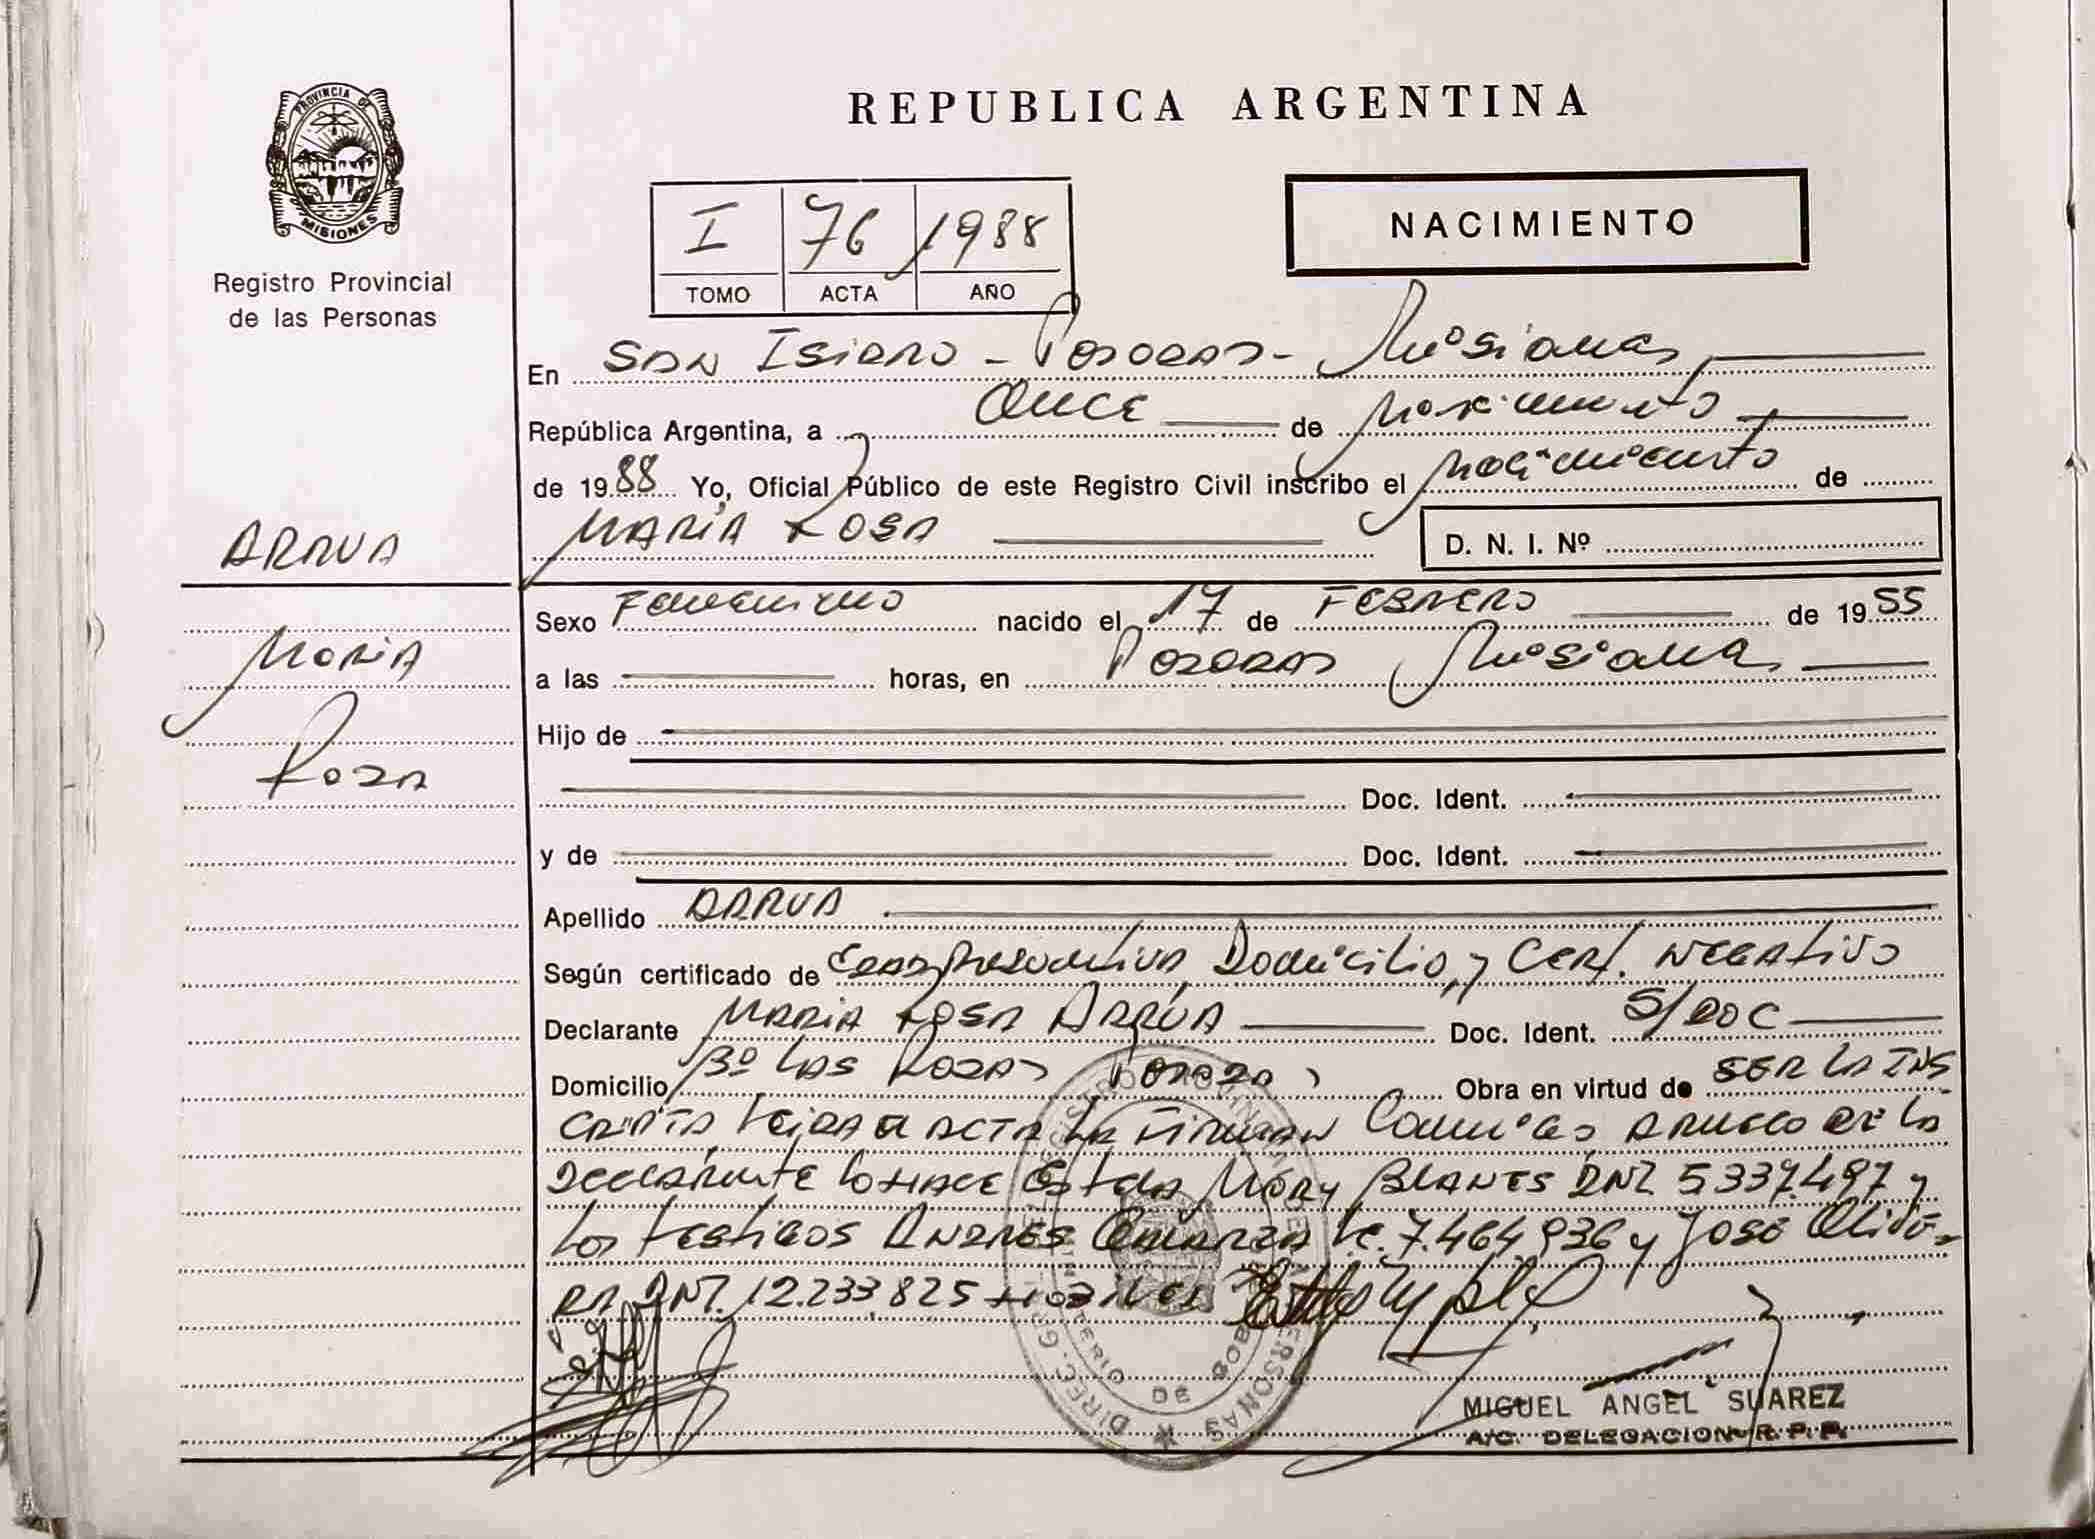 PROVINCIA DE
MISIONES
Registro Provincial
de las Personas
REPUBLICA ARGENTINA
I 76 1988
TOMO ACTA AÑO
NACIMIENTO
En San Isidro - Posadas - Misiones
República Argentina, a Once de
de 1988 Yo, Oficial Público de este Registro Civil inscribo el Nacimiento de
MARIA ROSA D. N. I. Nº
ARRUA
Maria
Rosa
Sexo Femenino nacido el 17 de FEBRERO de 1955
a las horas, en Posadas Misiones
Hijo de
Doc. Ident.
y de Doc. Ident.
Apellido ARRUA
Según certificado de Domicilio y Cert. Negativo
Declarante MARIA ROSA ARRÚA Doc. Ident. S/DOC
Domicilio Bº Las Rosas Posadas Obra en virtud de SER LA INS
CRIPTA ACTA LA FIRMAN A RUEGO DE LA
DECLARANTE LO HACE Estela Mary BLANES DNI 5337.497 y
los testigos ANDRES LE. 7.464.936 y JOSÉ
RA DNI. 12.233.825
MIGUEL ANGEL SUAREZ
A/C. DELEGACION R. P. P.